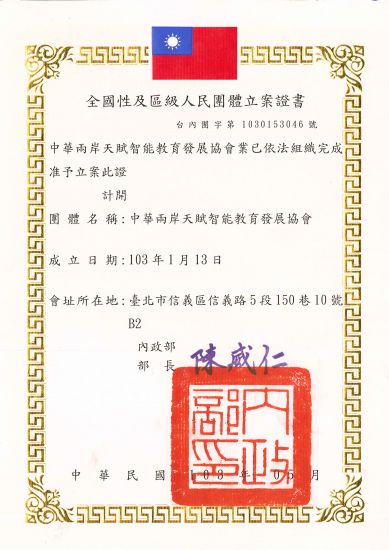 全國性及區級人民團體立案證書
台內團字第 1030153046 號
中華兩岸天賦智能教育發展協會業已依法組織完成
准予立案此證
計開
團體名稱：中華兩岸天賦智能教育發展協會
成立日期：103年1月13日
會址所在地：臺北市信義區信義路5段150巷10號
B2
內政部
部長 陳威仁
內政部印
中華民國 103 年 05 月